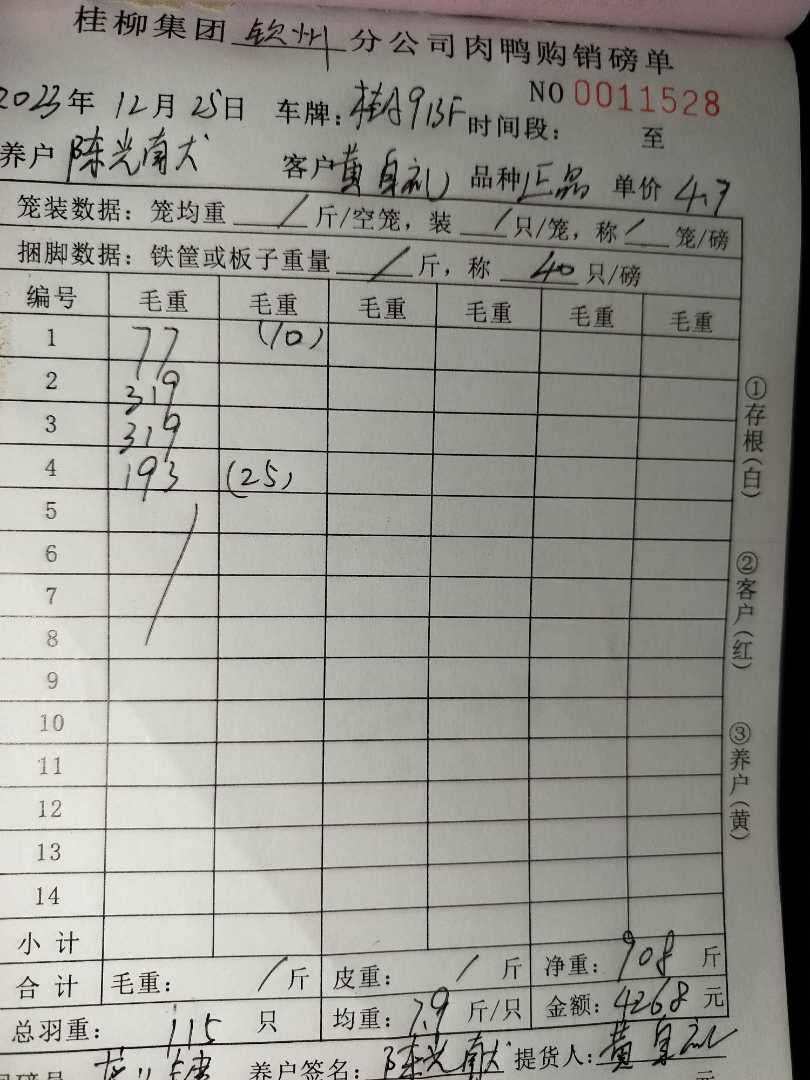 桂柳集团 钦州 分公司肉鸭购销磅单
NO 0011528
2023年 12月 25日 车牌: 桂A913F 时间段: 至
养户 陈光南大 客户 黄 礼 品种 正品 单价 4.7
笼装数据: 笼均重 / 斤/空笼, 装 / 只/笼, 称 / 笼/磅
捆脚数据: 铁筐或板子重量 / 斤, 称 40 只/磅
编号 毛重 毛重 毛重 毛重 毛重 毛重
1 77 (10)
2 319
3 319
4 193 (25)
5
6
7
8
9
10
11
12
13
14
小计
合计 毛重: / 斤 皮重: / 斤 净重: 908 斤
总羽重: 115 只 均重: 7.9 斤/只 金额: 4268 元
磅员 养户签名: 陈光南 提货人: 黄 礼
元
①存根(白)
②客户(红)
③养户(黄)